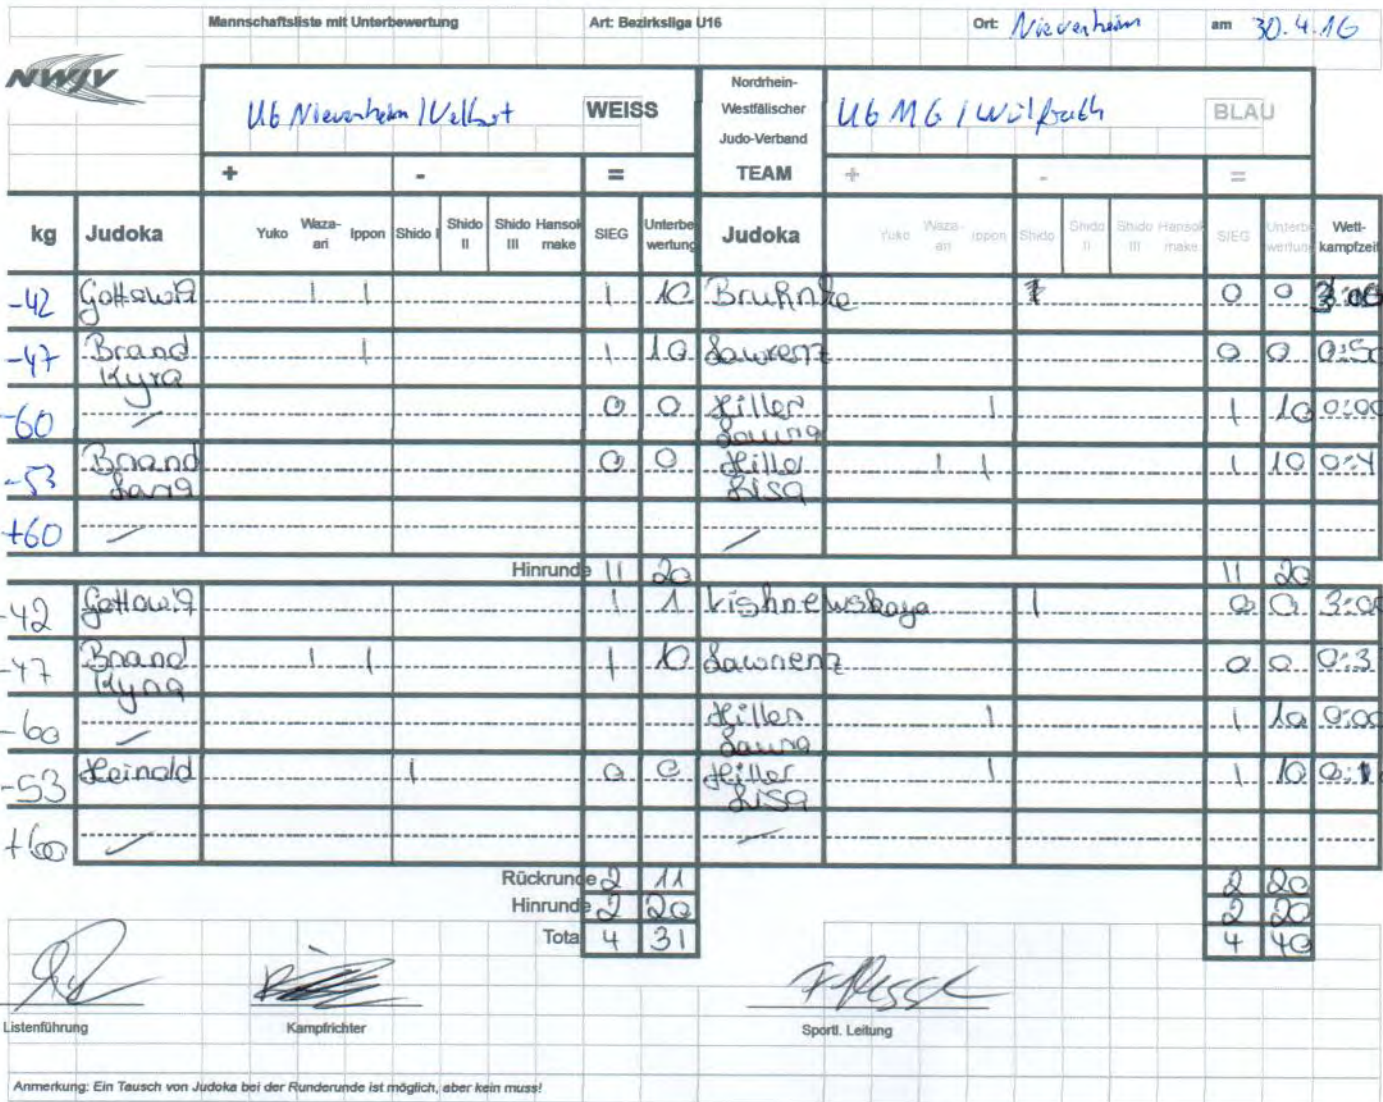 Mannschaftsliste mit Unterbewertung Art: Bezirksliga U16 Ort: Nievenheim am 30.4.16
NWJV
UG Nievenheim / Velbert WEISS Nordrhein- Westfälischer Judo-Verband UG MG / Wülfrath BLAU
+ - = TEAM + - =
kg Judoka Yuko Waza-ari Ippon Shido I Shido II Shido III Hansok make SIEG Unterbe wertung Judoka Yuko Waza-ari Ippon Shido Shido II Shido III Hansok make SIEG Unterbe wertung Wett-kampfzeit
-42 1 1 1 10 Bruhnke 0 0
-47 Brand Kyra 1 1 10 Lawrenz 0 0 0:50
-60 / 0 0 Hiller Laura 1 1 10 0:00
-53 Brand Lara 0 0 Hiller Lisa 1 1 1 10 0:4
+60 / /
Hinrunde 11 20 11 20
-42 1 1 Vishnewskaya 1 0 0 3:00
-47 Brand Kyra 1 1 1 10 Lawrenz 0 0 0:3
-60 / Hiller Laura 1 1 10 0:00
-53 Heinold 1 0 0 Hiller Lisa 1 1 10
+60 / /
Rückrunde 2 11 2 20
Hinrunde 2 20 2 20
Total 4 31 4 40
Listenführung Kampfrichter Sportl. Leitung
Anmerkung: Ein Tausch von Judoka bei der Runderunde ist möglich, aber kein muss!